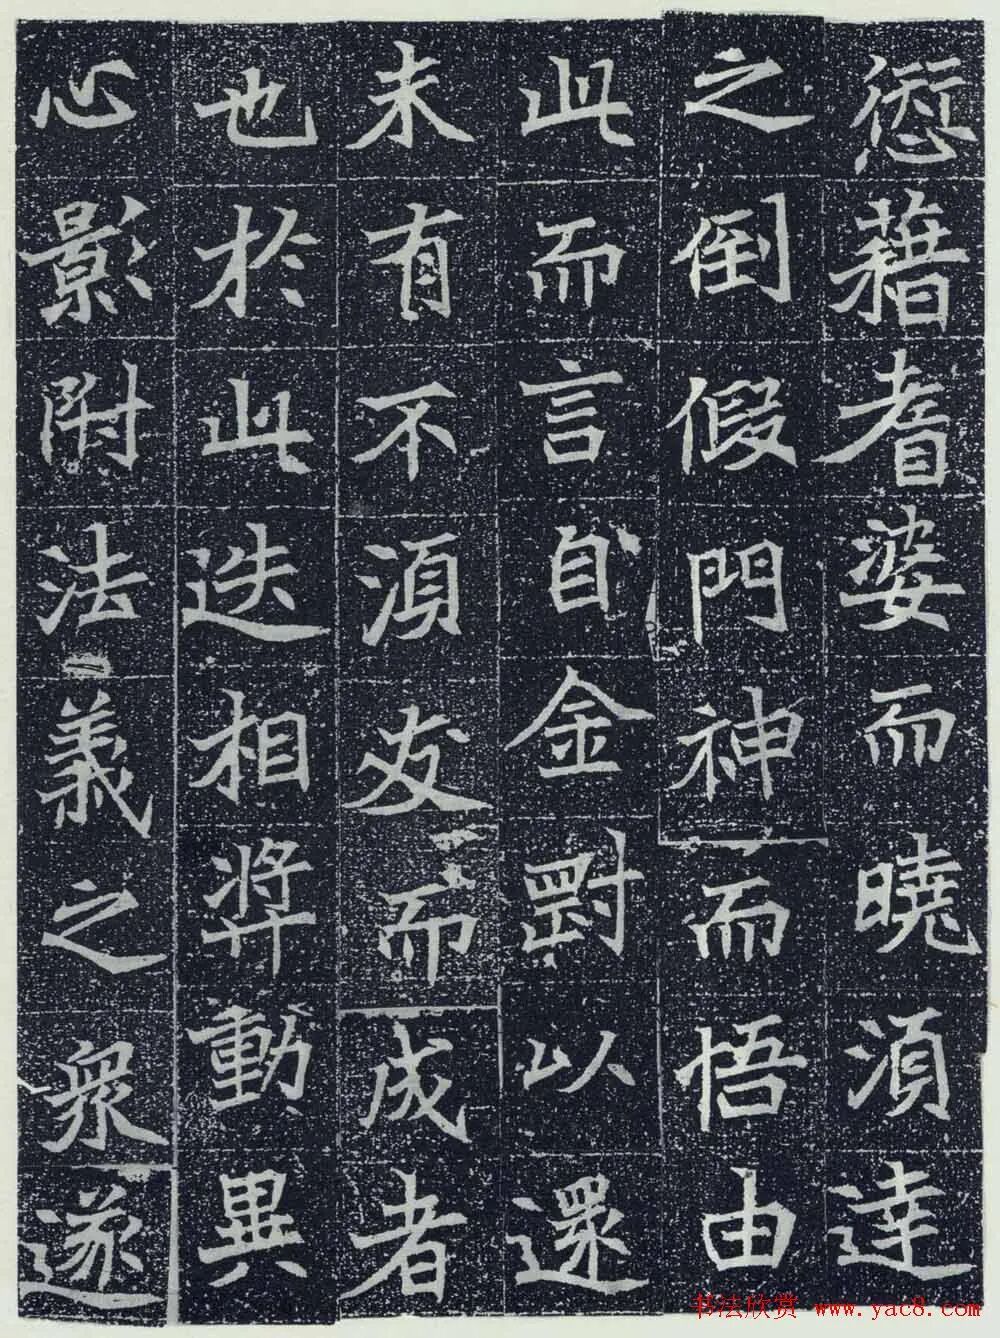 愆藉耆婆而曉湏達
之倒假門神而悟由
此而言自金剛以還
未有不湏友而成者
也於此迭相獎動異
心影附法義之衆遂
书法欣赏 www.yac8.com